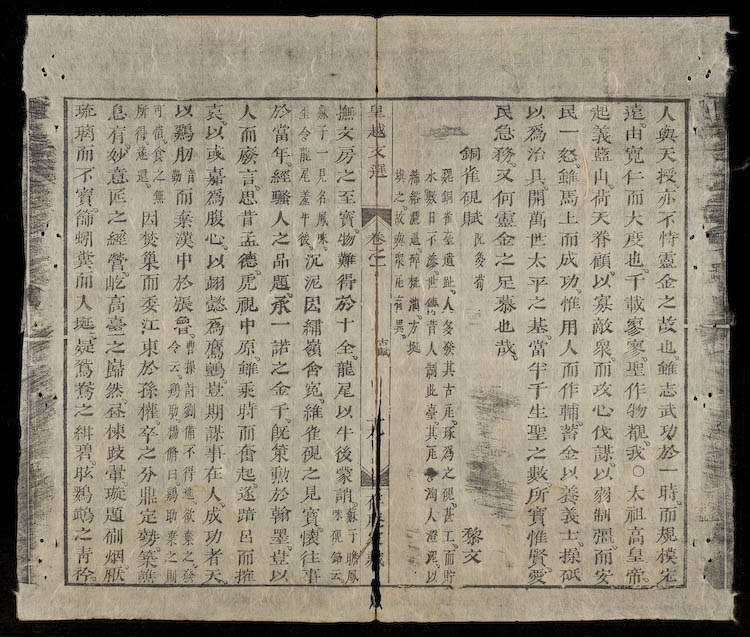 人與天授亦不恃靈金之故也。雖志武功於一時。而規模宏
遠。由寬仁而大度也。千載寥寥。聖作物覩。我〇太祖高皇帝。
起義藍山。荷天眷顧。以寡敵衆而攻心伐謀。以弱制彊而安
民一怒。雖馬上而成功。惟用人而作輔。蓄金以養義士。採砥
以爲治具。開萬世太平之基。當半千生聖之數。所寳惟賢。愛
民急務。又何靈金之足慕也哉。
銅雀硯賦 黎文
魏銅雀臺遺趾。人多發其古瓦。琢爲之硯。甚工。而貯
水數日不滲。世傳昔人制此臺。其瓦淘人澄泥。以
絺綌濾過碎核方埏
埴之。故與衆瓦有異。
皇越文選 卷之一 古賦 十九
撫文房之至寳。物難得於十全。龍尾以牛後蒙謂。蘇子瞻鳳咮硯銘云。
蘇子一見名鳳咮。坐令龍尾羞牛後。沉泥因緱嶺含寃。維雀硯之見寳。懷往事
於當年。經騷人之品題。承一諾之金千。旣策勳於翰墨。豈以
人而廢言。思昔孟德。虎視中原。雖乘時而奮起。遂踣呂而摧
袁。以或嘉爲腹心。以翊懿爲鷹鸇。豈期謀事在人成功者天。
以鷄肋而棄漢中於張魯。曹操討劉備不得進。欲棄之。發令云。鷄肋。楊脩曰。鷄肋棄之則
可惜。食之無所得。遂還。因焚巢而委江東於孫權。卒之分鼎定勢。築譙
息有。妙意匠之經營。屹高臺之巋然。棟歧暈。璇題劀烟。厭
琉璃而不寳。飾蚓糞而人埏。疑鴛鴦之紺碧。眩鸂鵡之青衿。